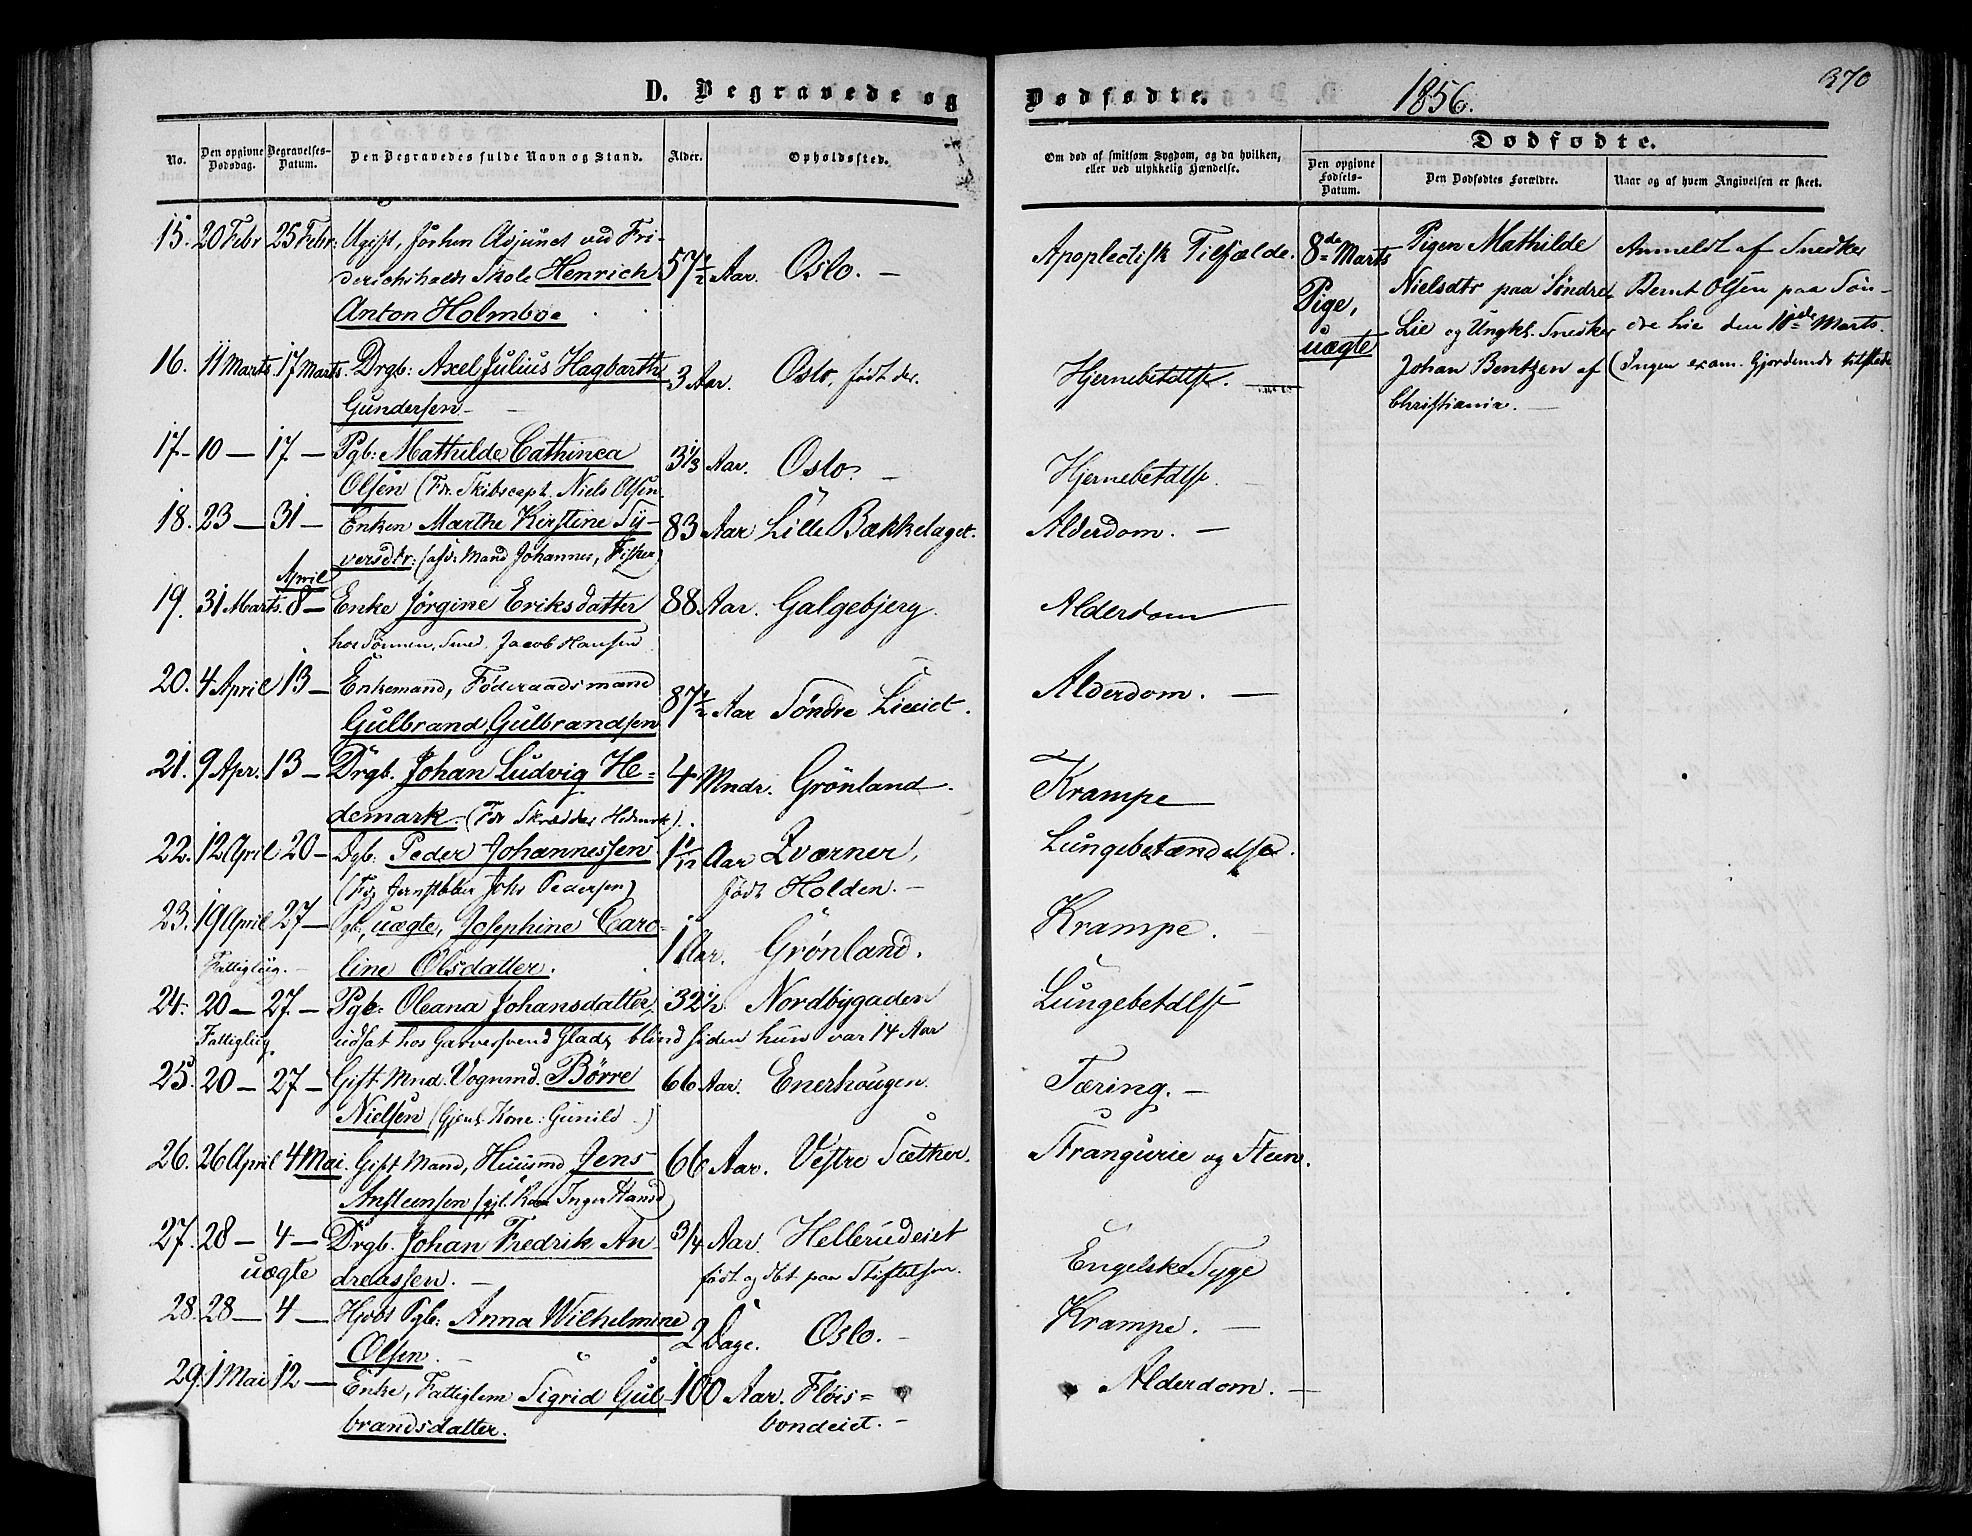 D. Begravede og Dødfødte. 1856. 370
No. Den opgivne Dødsdag. Begravelses-Datum. Den Begravedes fulde Navn og Stand. Alder. Opholdssted.
Om død af smitsom Sygdom, og da hvilken, eller ved ulykkelig Hændelse.
Dødfødte.
Den opgivne Fødsels-Datum. Den Dødfødtes Forældre. Naar og af hvem Angivelsen er skeet.
15. 20 Febr 25 Febr: Ugift, Adjunct ved Fri-
derichshalds Skole Henrich 57½ Aar. Oslo. — Apoplectisk Tilfælde.
Anton Holmboe
16. 11 Marts 17 Marts. Drgb: Axel Julius Hagbarth 3 Aar. Oslo, født der. Hjernebetdlse. —
Gundersen —
17- 10 — 17 — Pgb: Mathilde Cathinca 3⅓ Aar. Oslo. — Hjernebetdlse.
Olsen (Fdr. Skibscapt. Niels Olsen.
18. 23 — 31 — Enken Marthe Kirstine Sy- 83 Aar Lille Bækkelaget. Alderdom. —
versdtr: (afd: Mand Johannes, Fisker)
April
19. 31 Marts. 8 — Enke Jørgine Eriksdatter 88 Aar. Galgebjerg. Alderdom
hos Sønnen, Smed, Jacob Hansen
20. 4 April 13 — Enkemand, Føderaadsmand
Gulbrand Gulbrandsen 87½ Aar Søndre Lieeiet. Alderdom. —
21. 9 Apr. 13 — Drgb. Johan Ludvig He- 4 Mndr. Grönland. Krampe
demark. (Fdr Skrædder Hedemrk).
22. 12 April 20 — Dgb: Peder Johannessen 1 1/12 Aar Kværner, Lungebetændelse.
(Fdr Jernstøber Johs Pedersen) født Holden. —
23. 19 April 27 — Pgb, uægte, Josephine Caro- 1 Aar. Grønland. Krampe.
Fattiglig. — line Olsdatter.
24. 20 — 27. — Pgb: Oleana Johansdatter, 32½ Nordbygaden Lungebetdlse
Fattiglig udsat hos Garversvend Glad, blind siden hun var 14 Aar
25. 20 — 27 — Gift Mnd. Vognmd. Børre 66 Aar. Enerhougen. Tæring. —
Nielsen (Gjenl. Kone: Gunild .)
26. 26 April 4 Mai. Gift Mand, Huusmd Jens 66 Aar. Vestre Sæther. Strangurie og Steen.
Ansteensen (gjl. Kone Inger Hansd)
27. 28 — 4 — Drgb. Johan Fredrik An- ¾ Aar. Hellerudeiet Engelske Syge
uægte dreassen. — født og dbt paa Stiftelsen.
28. 28 — 4 — Hjdbt Pgb: Anna Wilhelmine 2 Dage. Oslo. — Krampe. —
Olsen. —
29. 1 Mai 12 — Enke, Fattiglem Sigrid Gul- 100 Aar. Fløis= Alderdom. —
brandsdatter. bondeiet. —
8de Marts
Pige,
uægte
Pigen Mathilde
Nielsdtr paa Søndre
Lie og Ungkl. Snedker
Johan Bentzen af
Christiania. —
Anmeldt af Snedker
Bernt Olsen paa Søn-
dre Lie den 10de Marts.
(Ingen exam. Gjordemdr tilstede